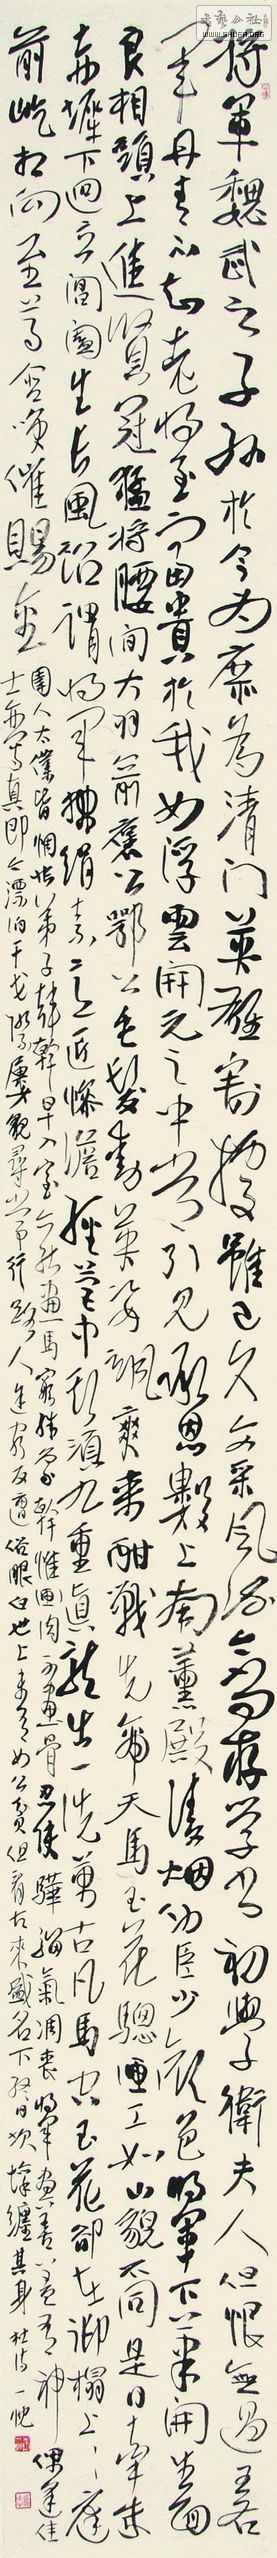 書藝公社
WWW.SHUFA.ORG
將軍魏武之子孫於今為庶為清門英雄割據雖已久文采風流今尚存學書初學衛夫人但恨無過王右
軍丹青不知老將至富貴於我如浮雲開元之中常引見承恩數上南薰殿凌烟功臣少顏色將軍下筆開生面
良相頭上進賢冠猛將腰間大羽箭褒公鄂公毛髮動英姿颯爽來酣戰先帝天馬玉花驄畫工如山貌不同是日牽來
赤墀下迥立閶闔生長風詔謂將軍拂絹素意匠慘澹經營中斯須九重真龍出一洗萬古凡馬空玉花卻在御榻上榻上庭
前屹相向至尊含笑催賜金
圉人太僕皆惆悵弟子韓幹早入室亦能畫馬窮殊相幹惟畫肉不畫骨忍使驊騮氣凋喪將軍畫善蓋有神偶逢佳
士亦寫真即今漂泊干戈際屢貌尋常行路人途窮反遭俗眼白世上未有如公貧但看古來盛名下終日坎壈纏其身 杜詩